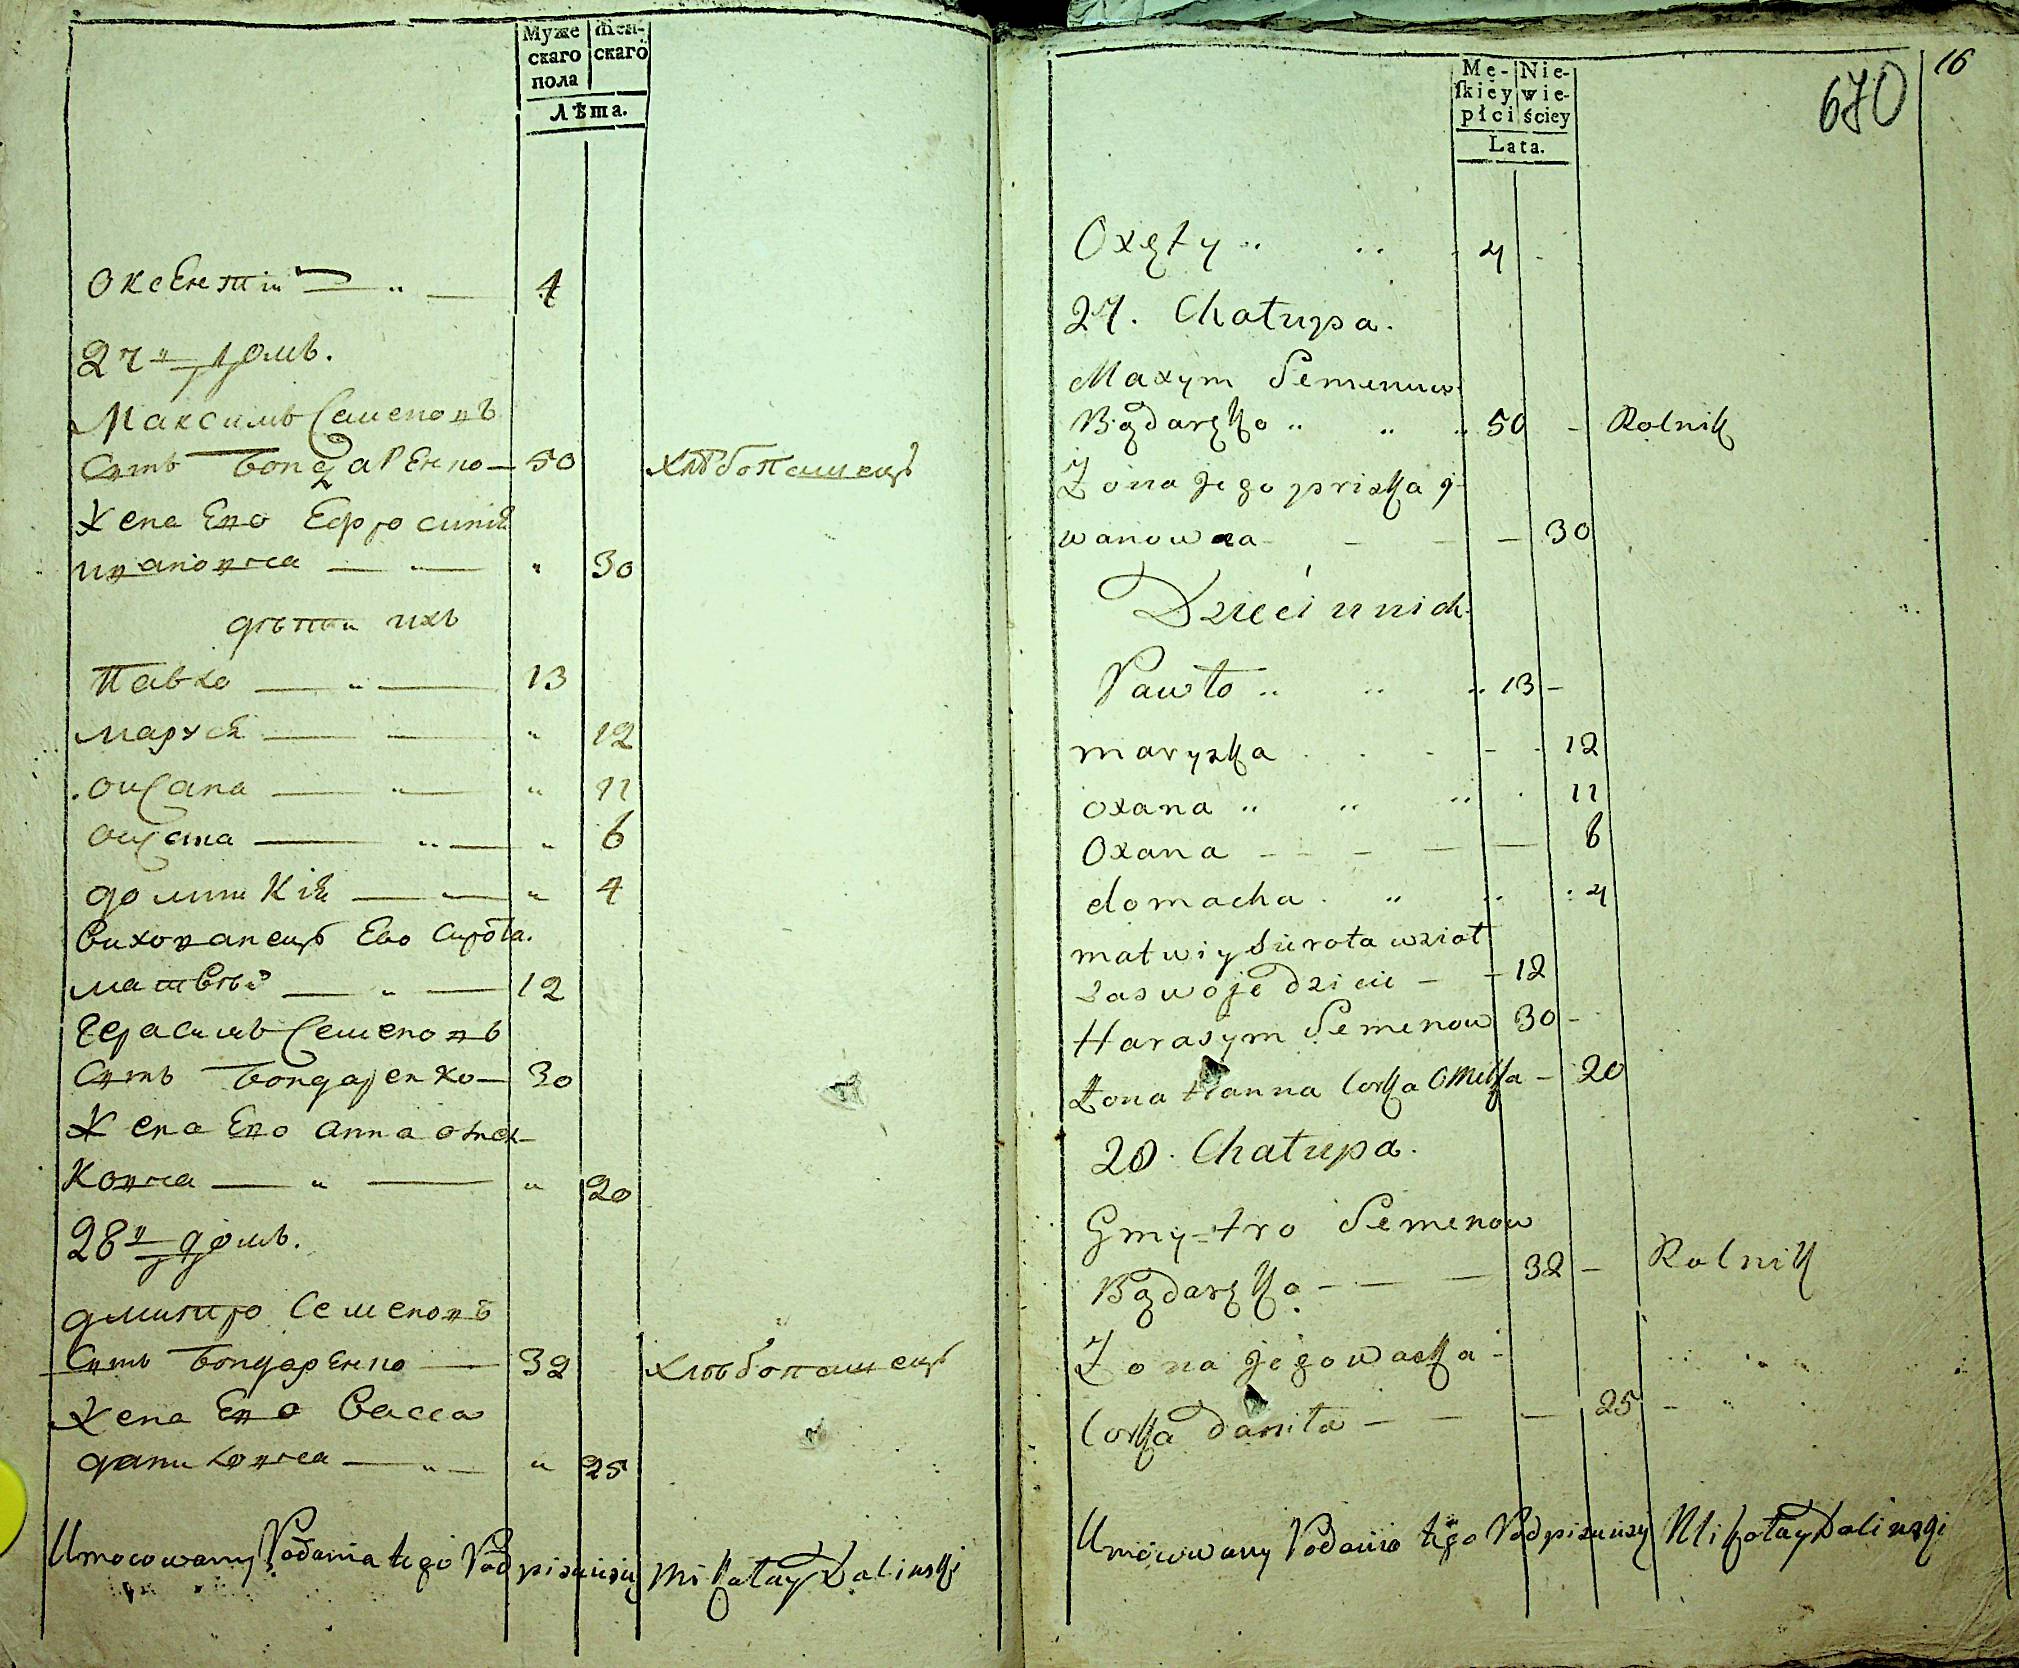 Муже
скаго
пола
Жен-
скаго
Лѣта.
Оксентiи — " — 4
27й домъ.
Максимъ Семеновъ
Сынъ Бондаренко — 50 хлѣбопашецъ
Жена Ево Ефросинiя
ивановна — " — " 30
дѣти ихъ
Павло — " — 13
маруся — — " 12
оксана — " — " 11
оксана — " — " 6
домникiя — — " 4
Вихованецъ Ево Сирота.
матвѣй — " — 12
Герасимъ Семеновъ
Сынъ Бондаренко — 30
Жена Ево анна омел-
ковна — " — " 20
28й домъ.
дмитро Семеновъ
Сынъ Бондаренко — 32 хлѣбопашецъ
Жена Ево Васса
даниловна — " — " 25
Umocowany Podania tego Podpisuiący Mikołay Dalinski
16
670
Mę-
skiey
płci
Nie-
wie-
ściey
Lata.
Oxęty " " 4 -
27. Chałupa.
Maxym Semenuw
Bądaręko " " " 50 - Rolnik
Żona jego priska j-
wanowna - - - - 30
Dzieci u nich.
Pawło " " " 13 -
maryska . . - - . 12
oxana " " " . 11
Oxana - - - - - 6
domacha . " " : 4
matwiy Sierota wzioł
za swoje dziecie - - 12
Harasym Semenow 30 -
Żona Hanna Corka Omelka - 20
28. Chałupa.
Gmy=tro Semenow
Bądaręko - - - 32 - Rolnik
Żona jego waska -
Corka daniła - - - 25 - "
Umocowany Podania tego Podpisuiący Mikołay Dalinski